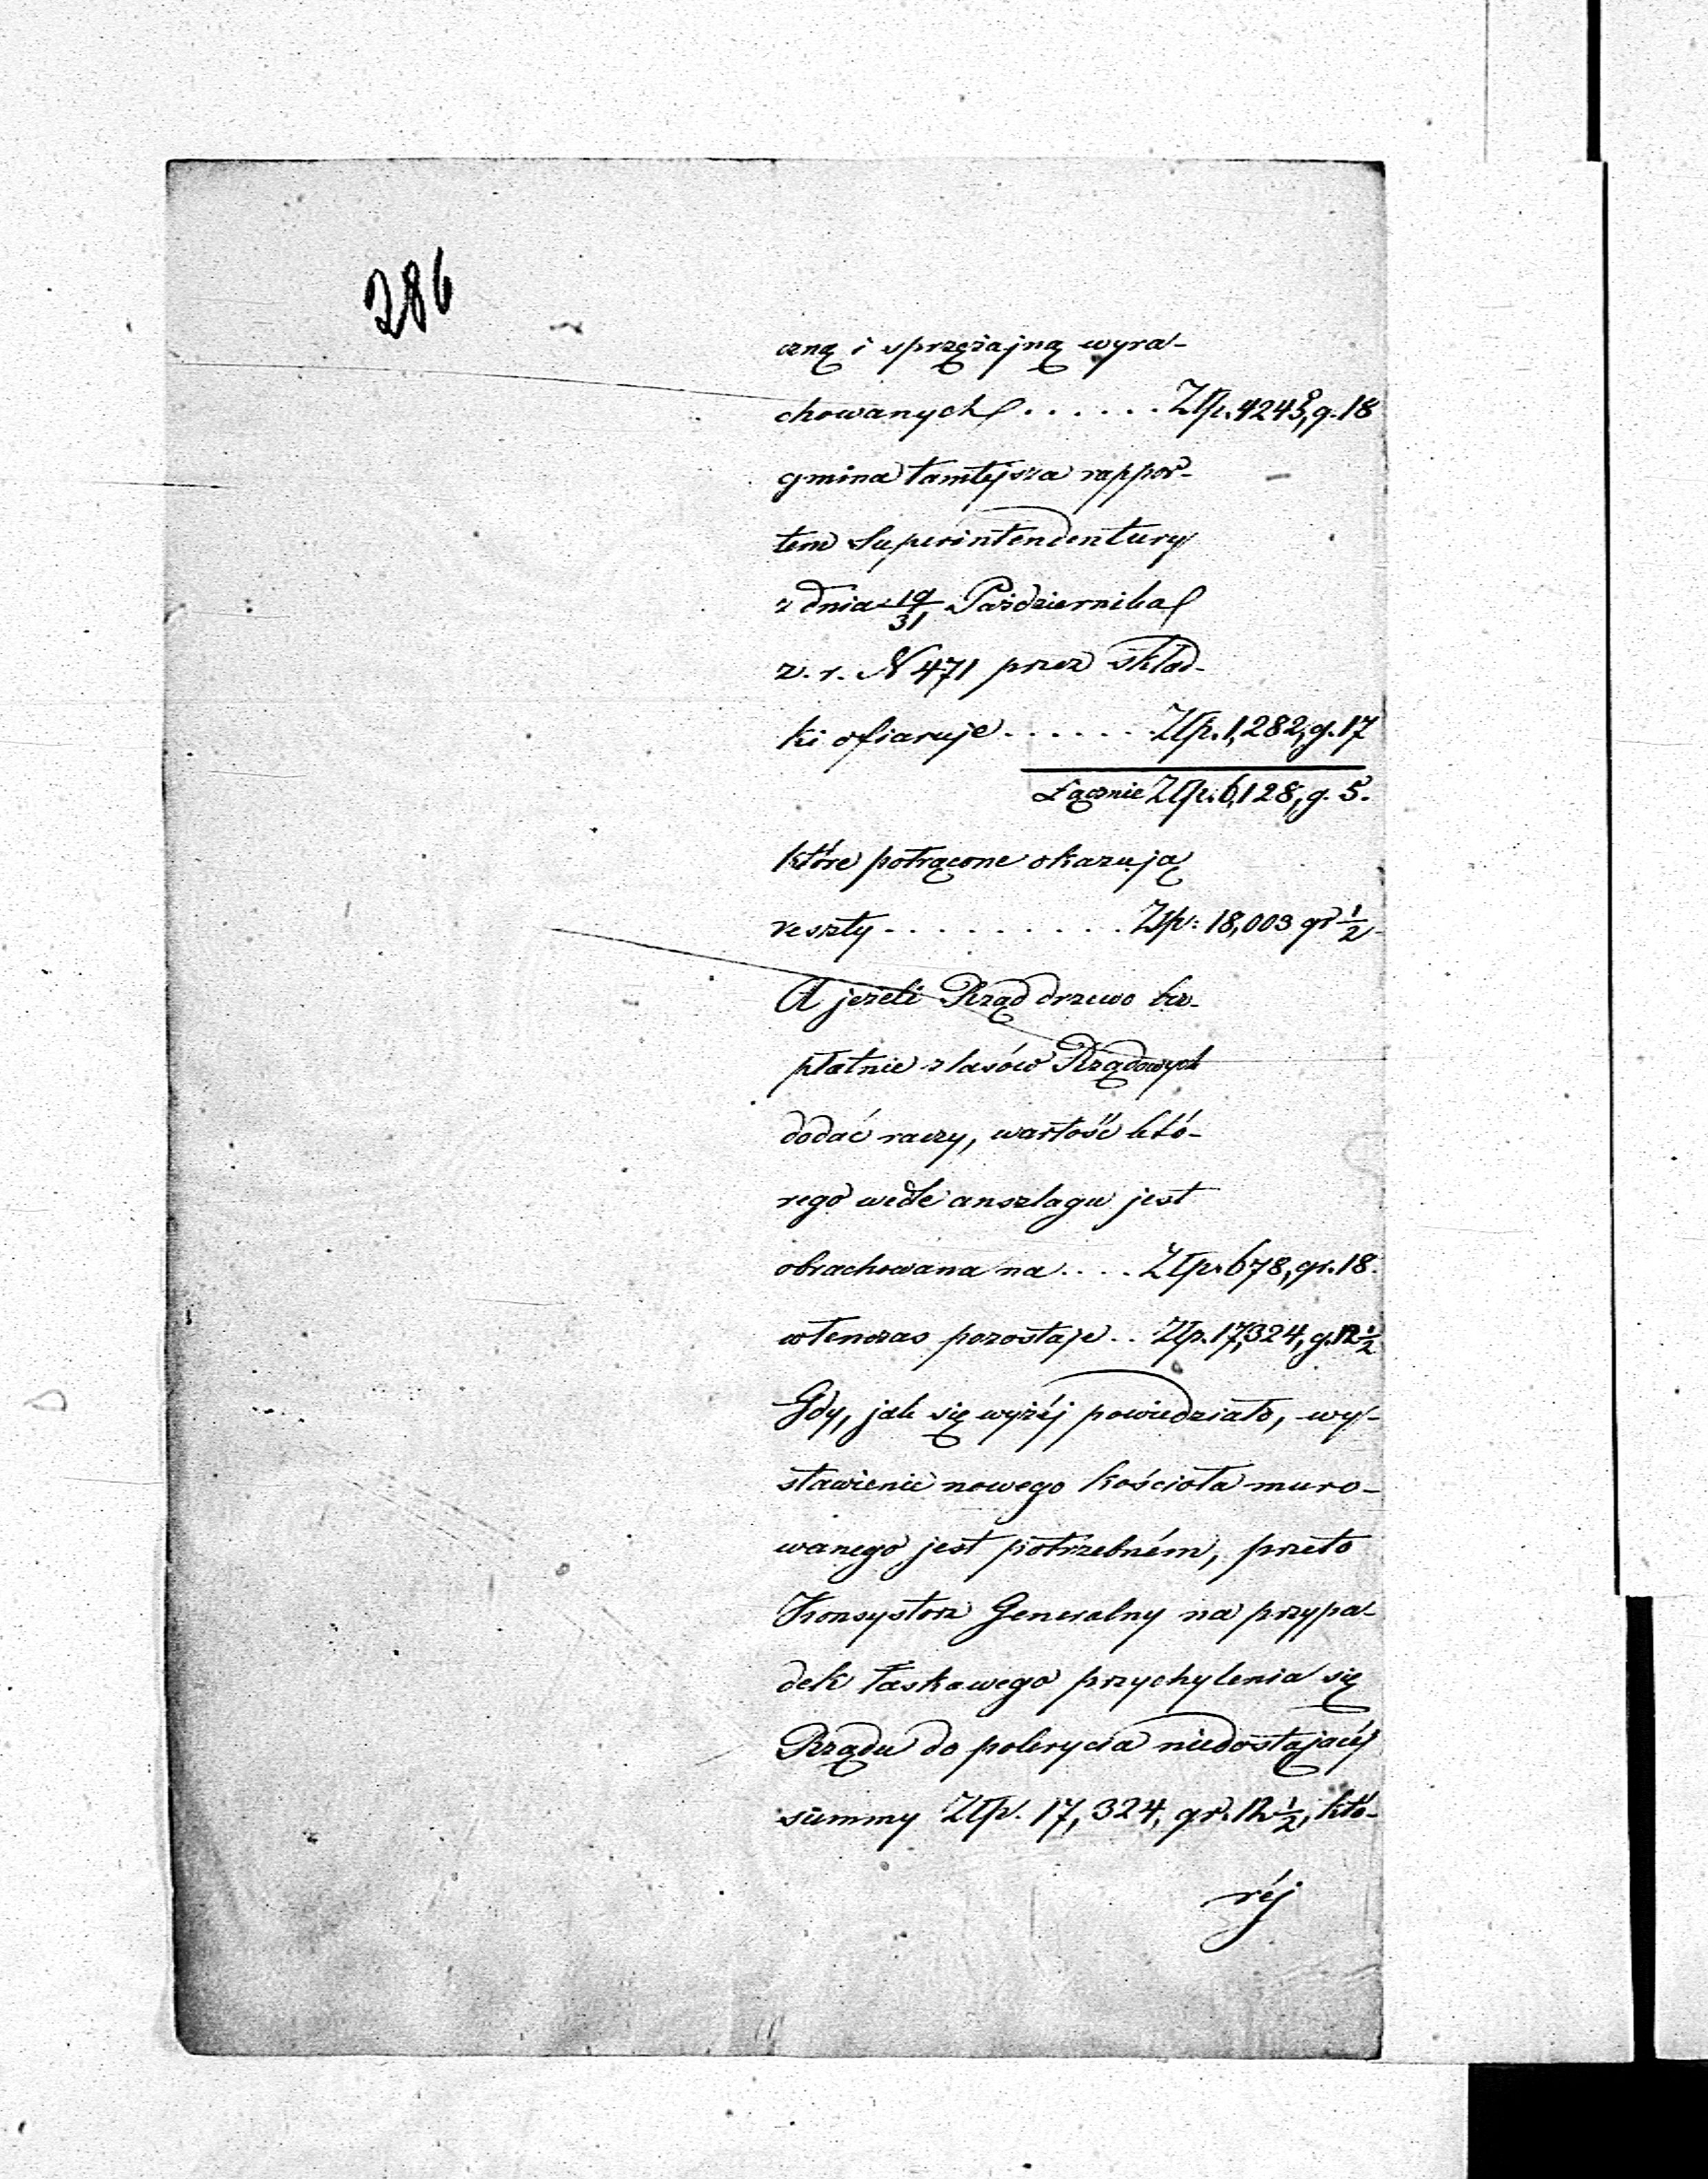 286
czną i sprzężajną wyra-
chowanych . . . . . . Złp. 4245, g. 18
gmina tamtejsza rappor-
tem Superintendentury
z dnia 19/31 Października
z. r. N 471 przez skład-
ki ofiaruje . . . . . . Złp. 1,282, g. 17
Łącznie Złp. 6,128, g. 5.
które potrącone okazują
reszty . . . . . . . . . . Złp: 18,003 gr ½
A jeżeli Rząd drzewo bez-
płatnie z lasów Rządowych
dodać raczy, wartość któ-
rego wedle anszlagu jest
obrachowana na . . . . Złp. 678, gr. 18.
wtenczas pozostaje . . Złp. 17,324, g. 12½
Gdy, jak się wyżéj powiedziało, wy-
stawienie nowego kościoła muro-
wanego jest potrzebném, przeto
Konsystorz Generalny na przypa-
dek łaskawego przychylenia się
Rządu do pokrycia niedostającéj
summy Złp. 17,324, gr. 12½, któ-
réj